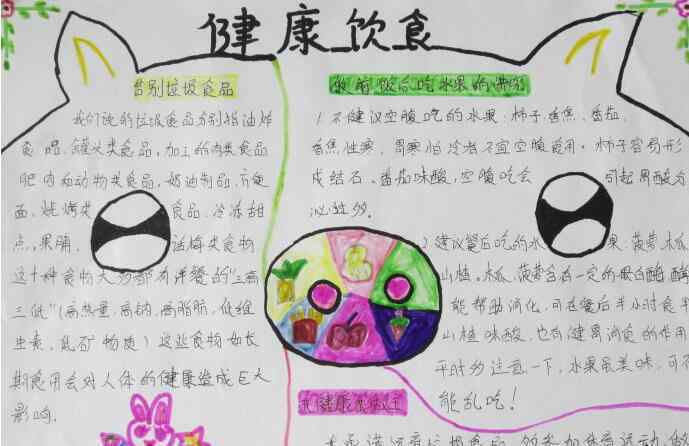 健康饮食
告别垃圾食品
我们说的垃圾食品分别指油炸
食品、罐头类食品、加工的肉类食品
肥肉和动物类食品、奶油制品、方便
面、烧烤类食品、冷冻甜
点、果脯、话梅类食物
这十种食物大多都有洋餐的“三高
三低”(高热量、高钠、高脂肪、低维
生素、低矿物质)这些食物如长
期食用会对人体的健康造成巨大
影响.
饭前饭后吃水果的讲究
1.不建议空腹吃的水果:柿子、香蕉、番茄,
香蕉性寒,胃寒怕冷者不宜空腹食用。柿子容易形
成结石、番茄味酸,空腹吃会引起胃酸分
泌过多.
2.建议餐后吃的水果:菠萝、木瓜
山楂。木瓜、菠萝含有一定的蛋白酶
能帮助消化,可在餐后半小时食
山楂味酸,也有健胃消食的作用
平时多注意一下,水果虽美味,可不
能乱吃!
健康